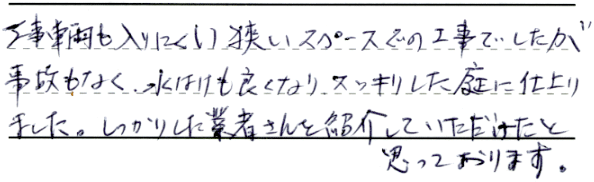 工事車両も入りにくい狭いスペースでの工事でしたが
事故もなく、水はけも良くなり、スッキリした庭に仕上り
ました。しっかりした業者さんを紹介していただけたと
思っております。